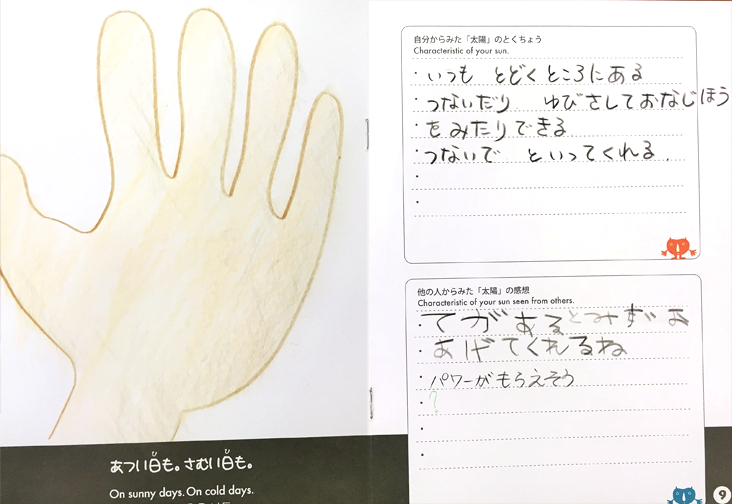 あつい日も。さむい日も。
On sunny days. On cold days.
自分からみた「太陽」のとくちょう
Characteristic of your sun.
・いつも とどくところにある
・つないだり ゆびさしておなじほう
・をみたりできる
・つないで といってくれる.
他の人からみた「太陽」の感想
Characteristic of your sun seen from others.
・てがあるとみずお
・あげてくれるね
・パワーがもらえそう
・?
9